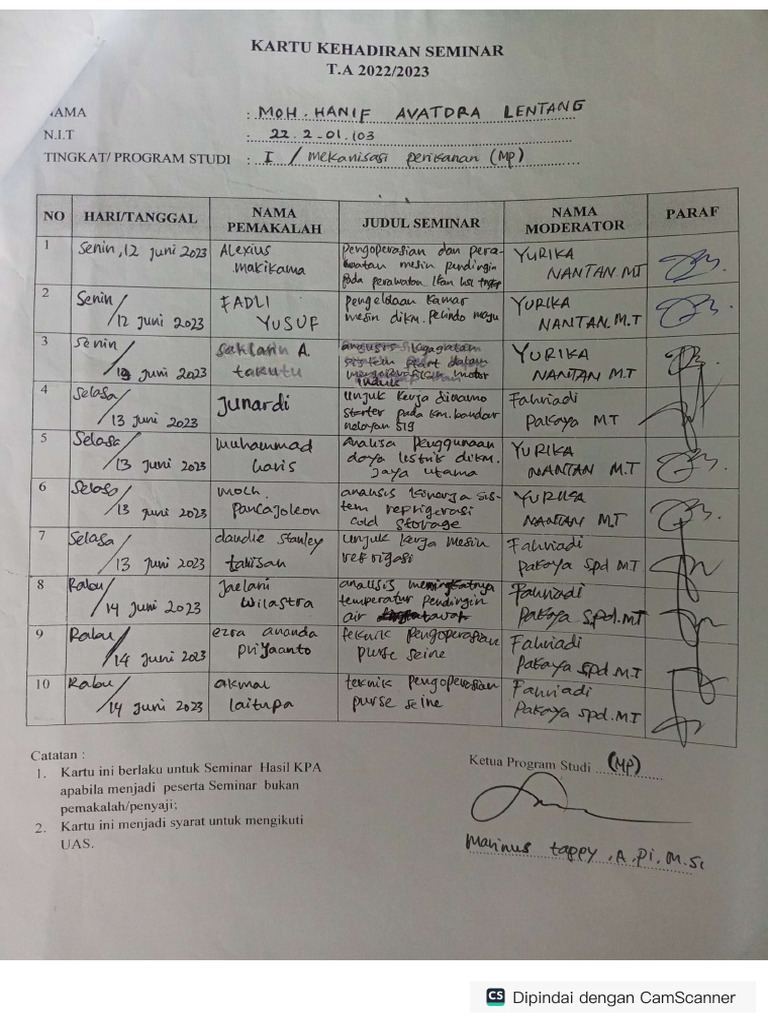 KARTU KEHADIRAN SEMINAR
T.A 2022/2023
AMA : MOH. HANIF AVATDRA LENTANG
N.I.T : 22.2.01.103
TINGKAT/ PROGRAM STUDI : I / mekanisasi perikanan (MP)
NO HARI/TANGGAL NAMA PEMAKALAH JUDUL SEMINAR NAMA MODERATOR PARAF
1 Senin, 12 juni 2023 Alexius makikama
pengoperasian dan pera-
watan mesin pendingin
pada perawatan ikan
YURIKA NANTAN MT
2 Senin / 12 juni 2023 FADLI YUSUF
pengelolaan kamar
mesin dikm. pelindo
YURIKA NANTAN. M.T
3 Senin / juni 2023 A. takutu
sistem start dalam
motor
induk
YURIKA NANTAN M.T
4 Selasa / 13 juni 2023 Junardi
unjuk kerja dinamo
starter pada km. bandar
nelayan
Fahriadi Pakaya MT
5 Selasa / 13 juni 2023 muhammad haris
Analisa Penggunaan
daya listrik dikm.
jaya utama
YURIKA NANTAN M.T
6 Selasa / 13 juni 2023 moch. pancajoleon
analisis kinerja sis-
tem refrigerasi
cold storage
YURIKA NANTAN M.T
7 Selasa / 13 juni 2023 dandie stanley tahisan
unjuk kerja mesin
refrigasi
Fahriadi pakaya spd MT
8 Rabu / 14 juni 2023 Jaelani wilastra
analisis meningkatnya
temperatur pendingin
air tawar
Fahriadi pakaya S.pd.MT
9 Rabu / 14 juni 2023 ezra ananda priyaanto
teknik pengoperasian
purse seine
Fahriadi Pakaya spd MT
10 Rabu / 14 juni 2023 akmal laitupa
teknik pengoperasian
purse seine
Fahriadi Pakaya spd.MT
Catatan :
1. Kartu ini berlaku untuk Seminar Hasil KPA
apabila menjadi peserta Seminar bukan
pemakalah/penyaji;
2. Kartu ini menjadi syarat untuk mengikuti
UAS.
Ketua Program Studi (MP)
Marinus tappy, A.Pi, M.Si
CS Dipindai dengan CamScanner